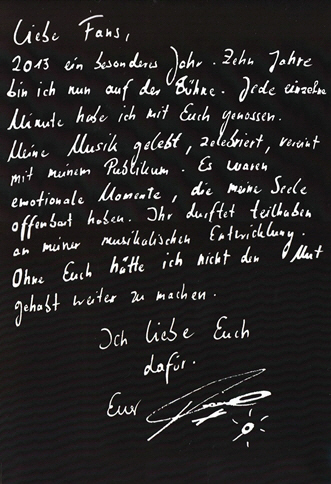 Liebe Fans,
2013 ein besonderes Jahr. Zehn Jahre
bin ich nun auf der Bühne. Jede einzelne
Minute habe ich mit Euch genossen.
Meine Musik gelebt, zelebriert, vereint
mit meinem Publikum. Es waren
emotionale Momente, die meine Seele
offenbart haben. Ihr durftet teilhaben
an meiner musikalischen Entwicklung.
Ohne Euch hätte ich nicht den Mut
gehabt weiter zu machen.
Ich liebe Euch
dafür.
Euer